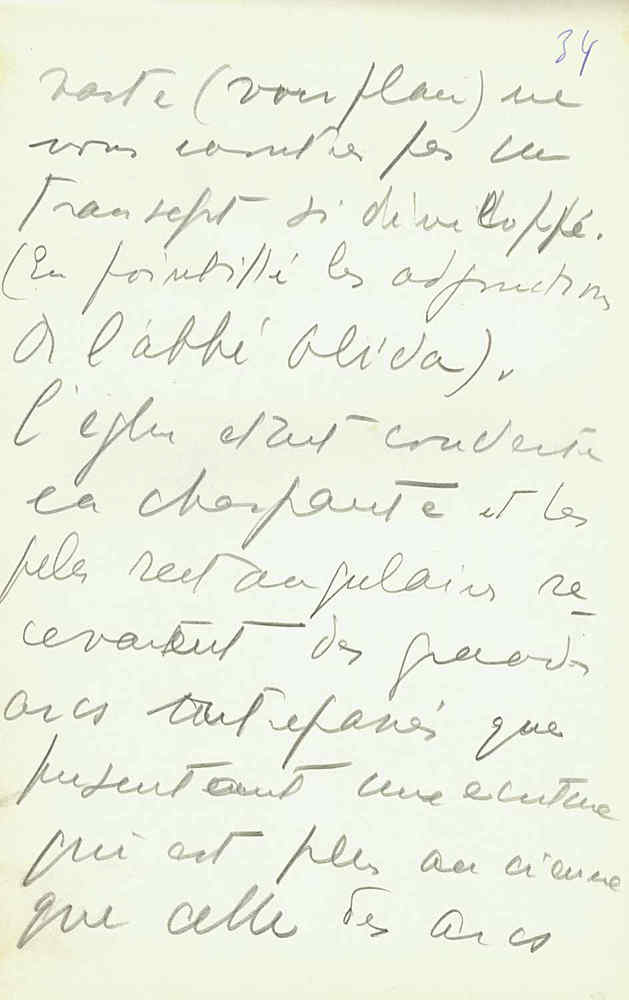 34
vaste (voir plan) ne
vous montrer pas un
transept si développé.
(En pointillé les adjonctions
de l'abbé Oliva).
l'église était couverte
en charpente et les
piles rectangulaires re-
cevaient des grands
arcs outrepassés que
présentent une
qui est plus ancienne
que celle des arcs